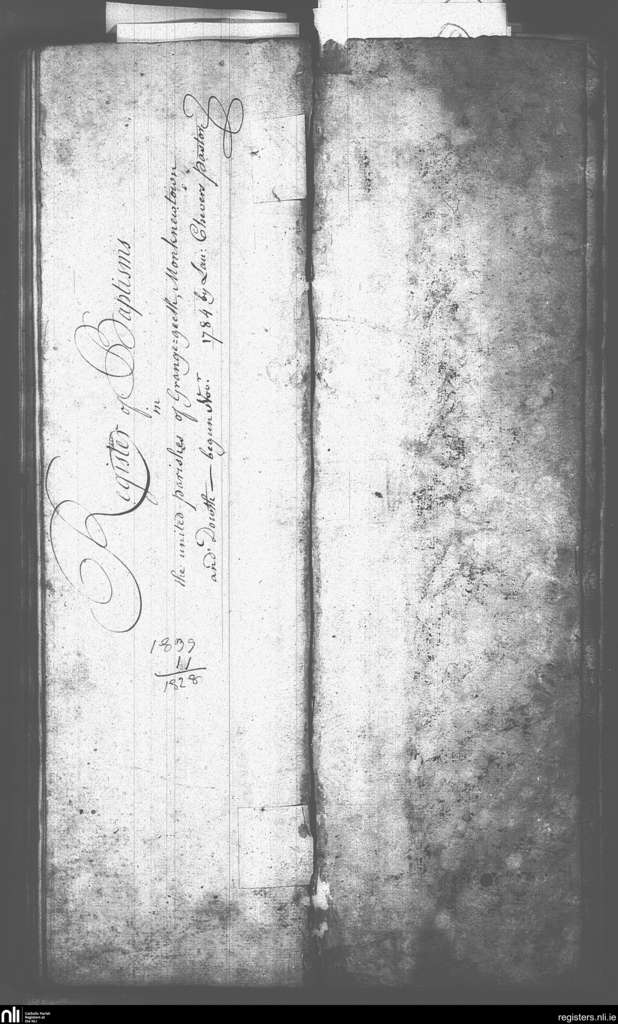 Register of Baptisms
in
the united parishes of Grange-geeth, Monknewtown
and Dowth — begun Novr. 1784 by Lau: Chevers pastor
1839
11
1828
nli
Catholic Parish
Registers at
the NLI
registers.nli.ie